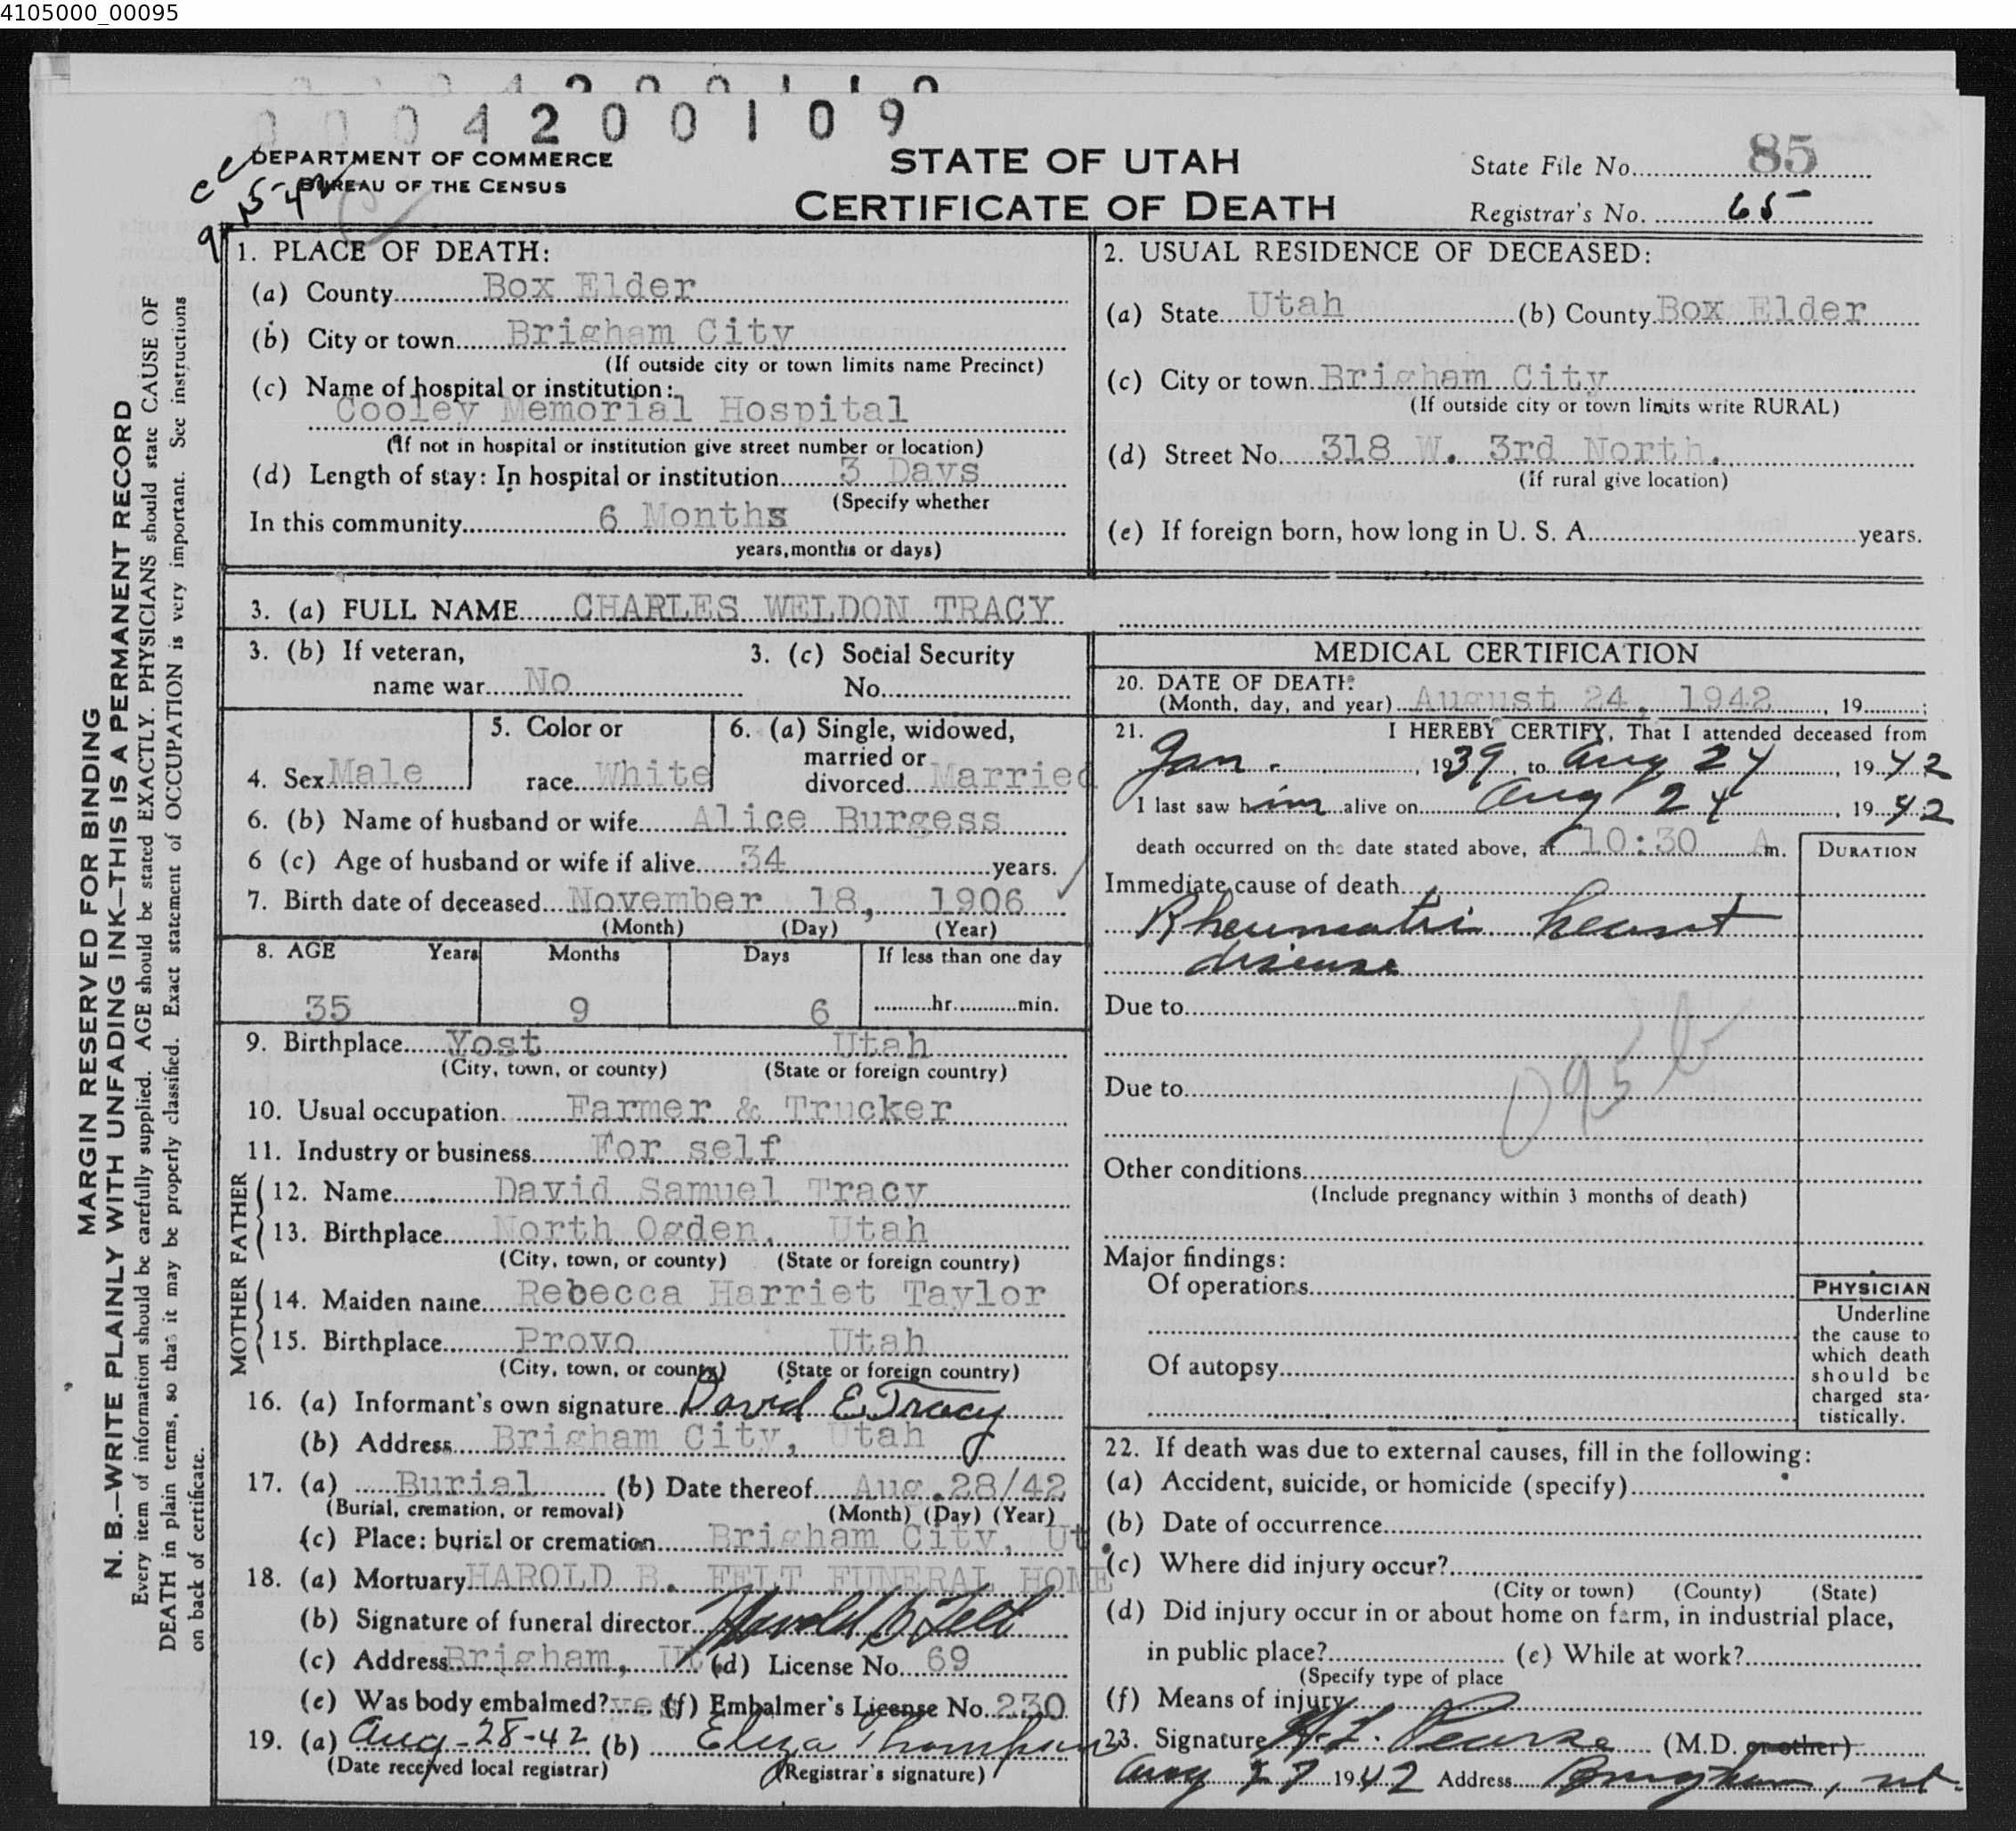 4105000_00095
0004200109
DEPARTMENT OF COMMERCE
BUREAU OF THE CENSUS
STATE OF UTAH
CERTIFICATE OF DEATH
State File No. 85
Registrar's No. 65
MARGIN RESERVED FOR BINDING
N. B.—WRITE PLAINLY WITH UNFADING INK—THIS IS A PERMANENT RECORD
Every item of information should be carefully supplied. AGE should be stated EXACTLY. PHYSICIANS should state CAUSE OF
DEATH in plain terms, so that it may be properly classified. Exact statement of OCCUPATION is very important. See instructions
on back of certificate.
1. PLACE OF DEATH:
(a) County Box Elder
(b) City or town Brigham City
(If outside city or town limits name Precinct)
(c) Name of hospital or institution:
Cooley Memorial Hospital
(If not in hospital or institution give street number or location)
(d) Length of stay: In hospital or institution 3 Days
(Specify whether
In this community 6 Months
years, months or days)
2. USUAL RESIDENCE OF DECEASED:
(a) State Utah (b) County Box Elder
(c) City or town Brigham City
(If outside city or town limits write RURAL)
(d) Street No. 318 W. 3rd North.
(If rural give location)
(e) If foreign born, how long in U. S. A. years.
3. (a) FULL NAME CHARLES WELDON TRACY
3. (b) If veteran, 3. (c) Social Security
name war No No.
4. Sex Male
5. Color or
race White
6. (a) Single, widowed,
married or
divorced Married
6. (b) Name of husband or wife Alice Burgess
6 (c) Age of husband or wife if alive 34 years.
7. Birth date of deceased November 18, 1906
(Month) (Day) (Year)
8. AGE Years Months Days If less than one day
35 9 6 hr. min.
9. Birthplace Yost Utah
(City, town, or county) (State or foreign country)
10. Usual occupation Farmer & Trucker
11. Industry or business For self
FATHER
12. Name David Samuel Tracy
13. Birthplace North Ogden, Utah
(City, town, or county) (State or foreign country)
MOTHER
14. Maiden name Rebecca Harriet Taylor
15. Birthplace Provo Utah
(City, town, or county) (State or foreign country)
16. (a) Informant's own signature David E. Tracy
(b) Address Brigham City, Utah
17. (a) Burial (b) Date thereof Aug. 28/42
(Burial, cremation, or removal) (Month) (Day) (Year)
(c) Place: burial or cremation Brigham City, Ut.
18. (a) Mortuary HAROLD B. FELT FUNERAL HOME
(b) Signature of funeral director Harold B Felt
(c) Address Brigham, Ut (d) License No. 69
(e) Was body embalmed? yes (f) Embalmer's License No. 230
19. (a) Aug-28-42 (b) Eliza Thompson
(Date received local registrar) (Registrar's signature)
MEDICAL CERTIFICATION
20. DATE OF DEATH:
(Month, day, and year) August 24, 1942, 19 ;
21. I HEREBY CERTIFY, That I attended deceased from
Jan. , 1939, to Aug 24, 1942
I last saw him alive on Aug 24, 1942
death occurred on the date stated above, at 10:30 A m.
DURATION
Immediate cause of death
Rheumatic heart
disease
Due to
Due to
095b
Other conditions
(Include pregnancy within 3 months of death)
Major findings:
Of operations
Of autopsy
PHYSICIAN
Underline
the cause to
which death
should be
charged sta-
tistically.
22. If death was due to external causes, fill in the following:
(a) Accident, suicide, or homicide (specify)
(b) Date of occurrence
(c) Where did injury occur?
(City or town) (County) (State)
(d) Did injury occur in or about home on farm, in industrial place,
in public place? (e) While at work?
(Specify type of place
(f) Means of injury
23. Signature (M.D. or other)
Aug 27 1942 Address Brigham, Ut.